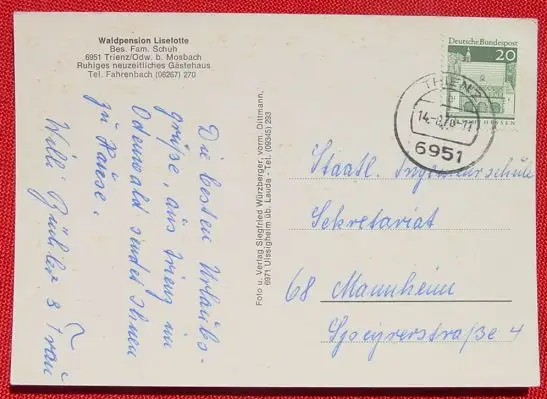 Waldpension Liselotte
Bes. Fam. Schuh
6951 Trienz/Odw. b. Mosbach
Ruhiges neuzeitliches Gästehaus
Tel. Fahrenbach (06267) 270
Die besten Urlaubs-
grüße, aus Trienz im
Odenwald sendet Ihnen
zu Hause.
Willi & Frau
Foto u. Verlag Siegfried Würzberger, vorm. Dittmann,
6971 Uissigheim üb. Lauda - Tel. (09345) 233
Deutsche Bundespost
20
HESSEN
TRIENZ
6951
Staatl. Ingenieurschule
Sekretariat
68 Mannheim
Speyrerstraße 4